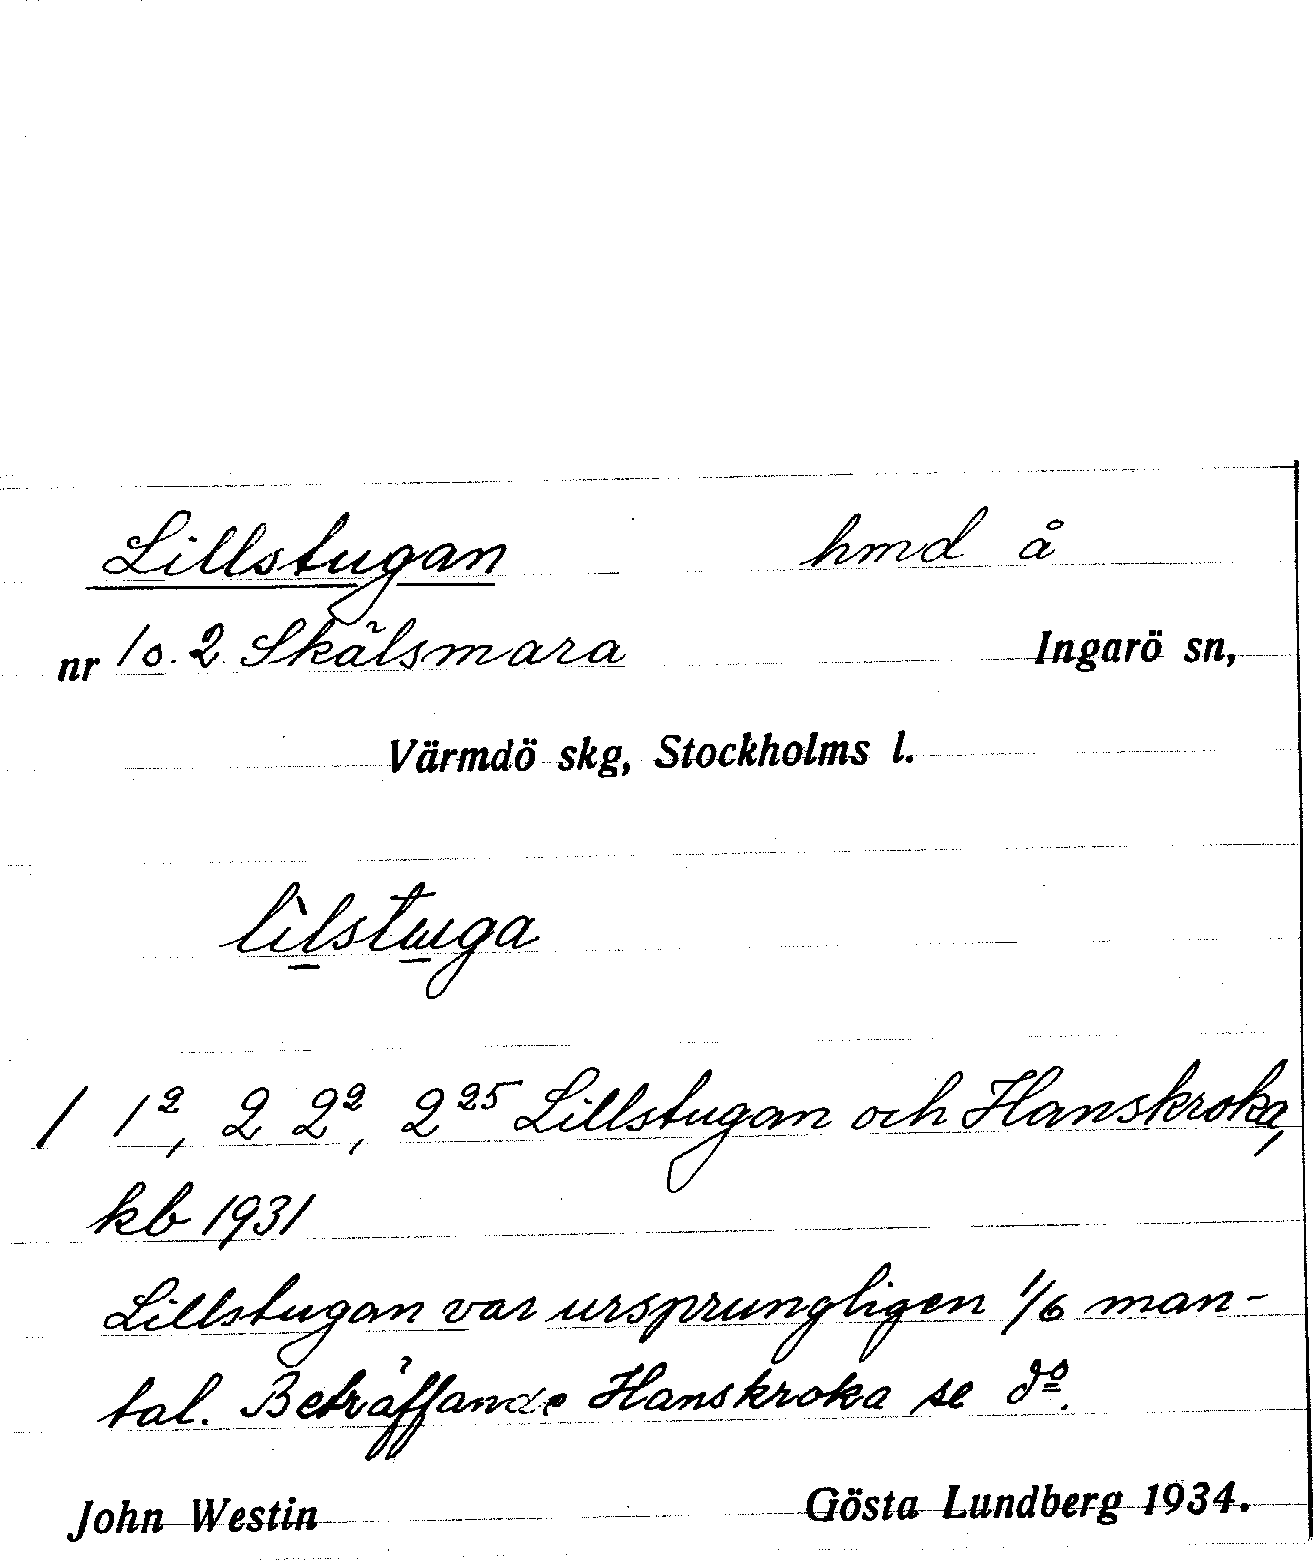 Lillstugan hmd å
nr 1 o. 2 Skälsmara Ingarö sn,
Värmdö skg, Stockholms l.
lilstuga
/ 1², 2 2², 2²⁵ Lillstugan och Hanskroka,
kb 1931
Lillstugan var ursprungligen 1/6 man-
tal. Beträffande Hanskroka se dº.
John Westin Gösta Lundberg 1934.